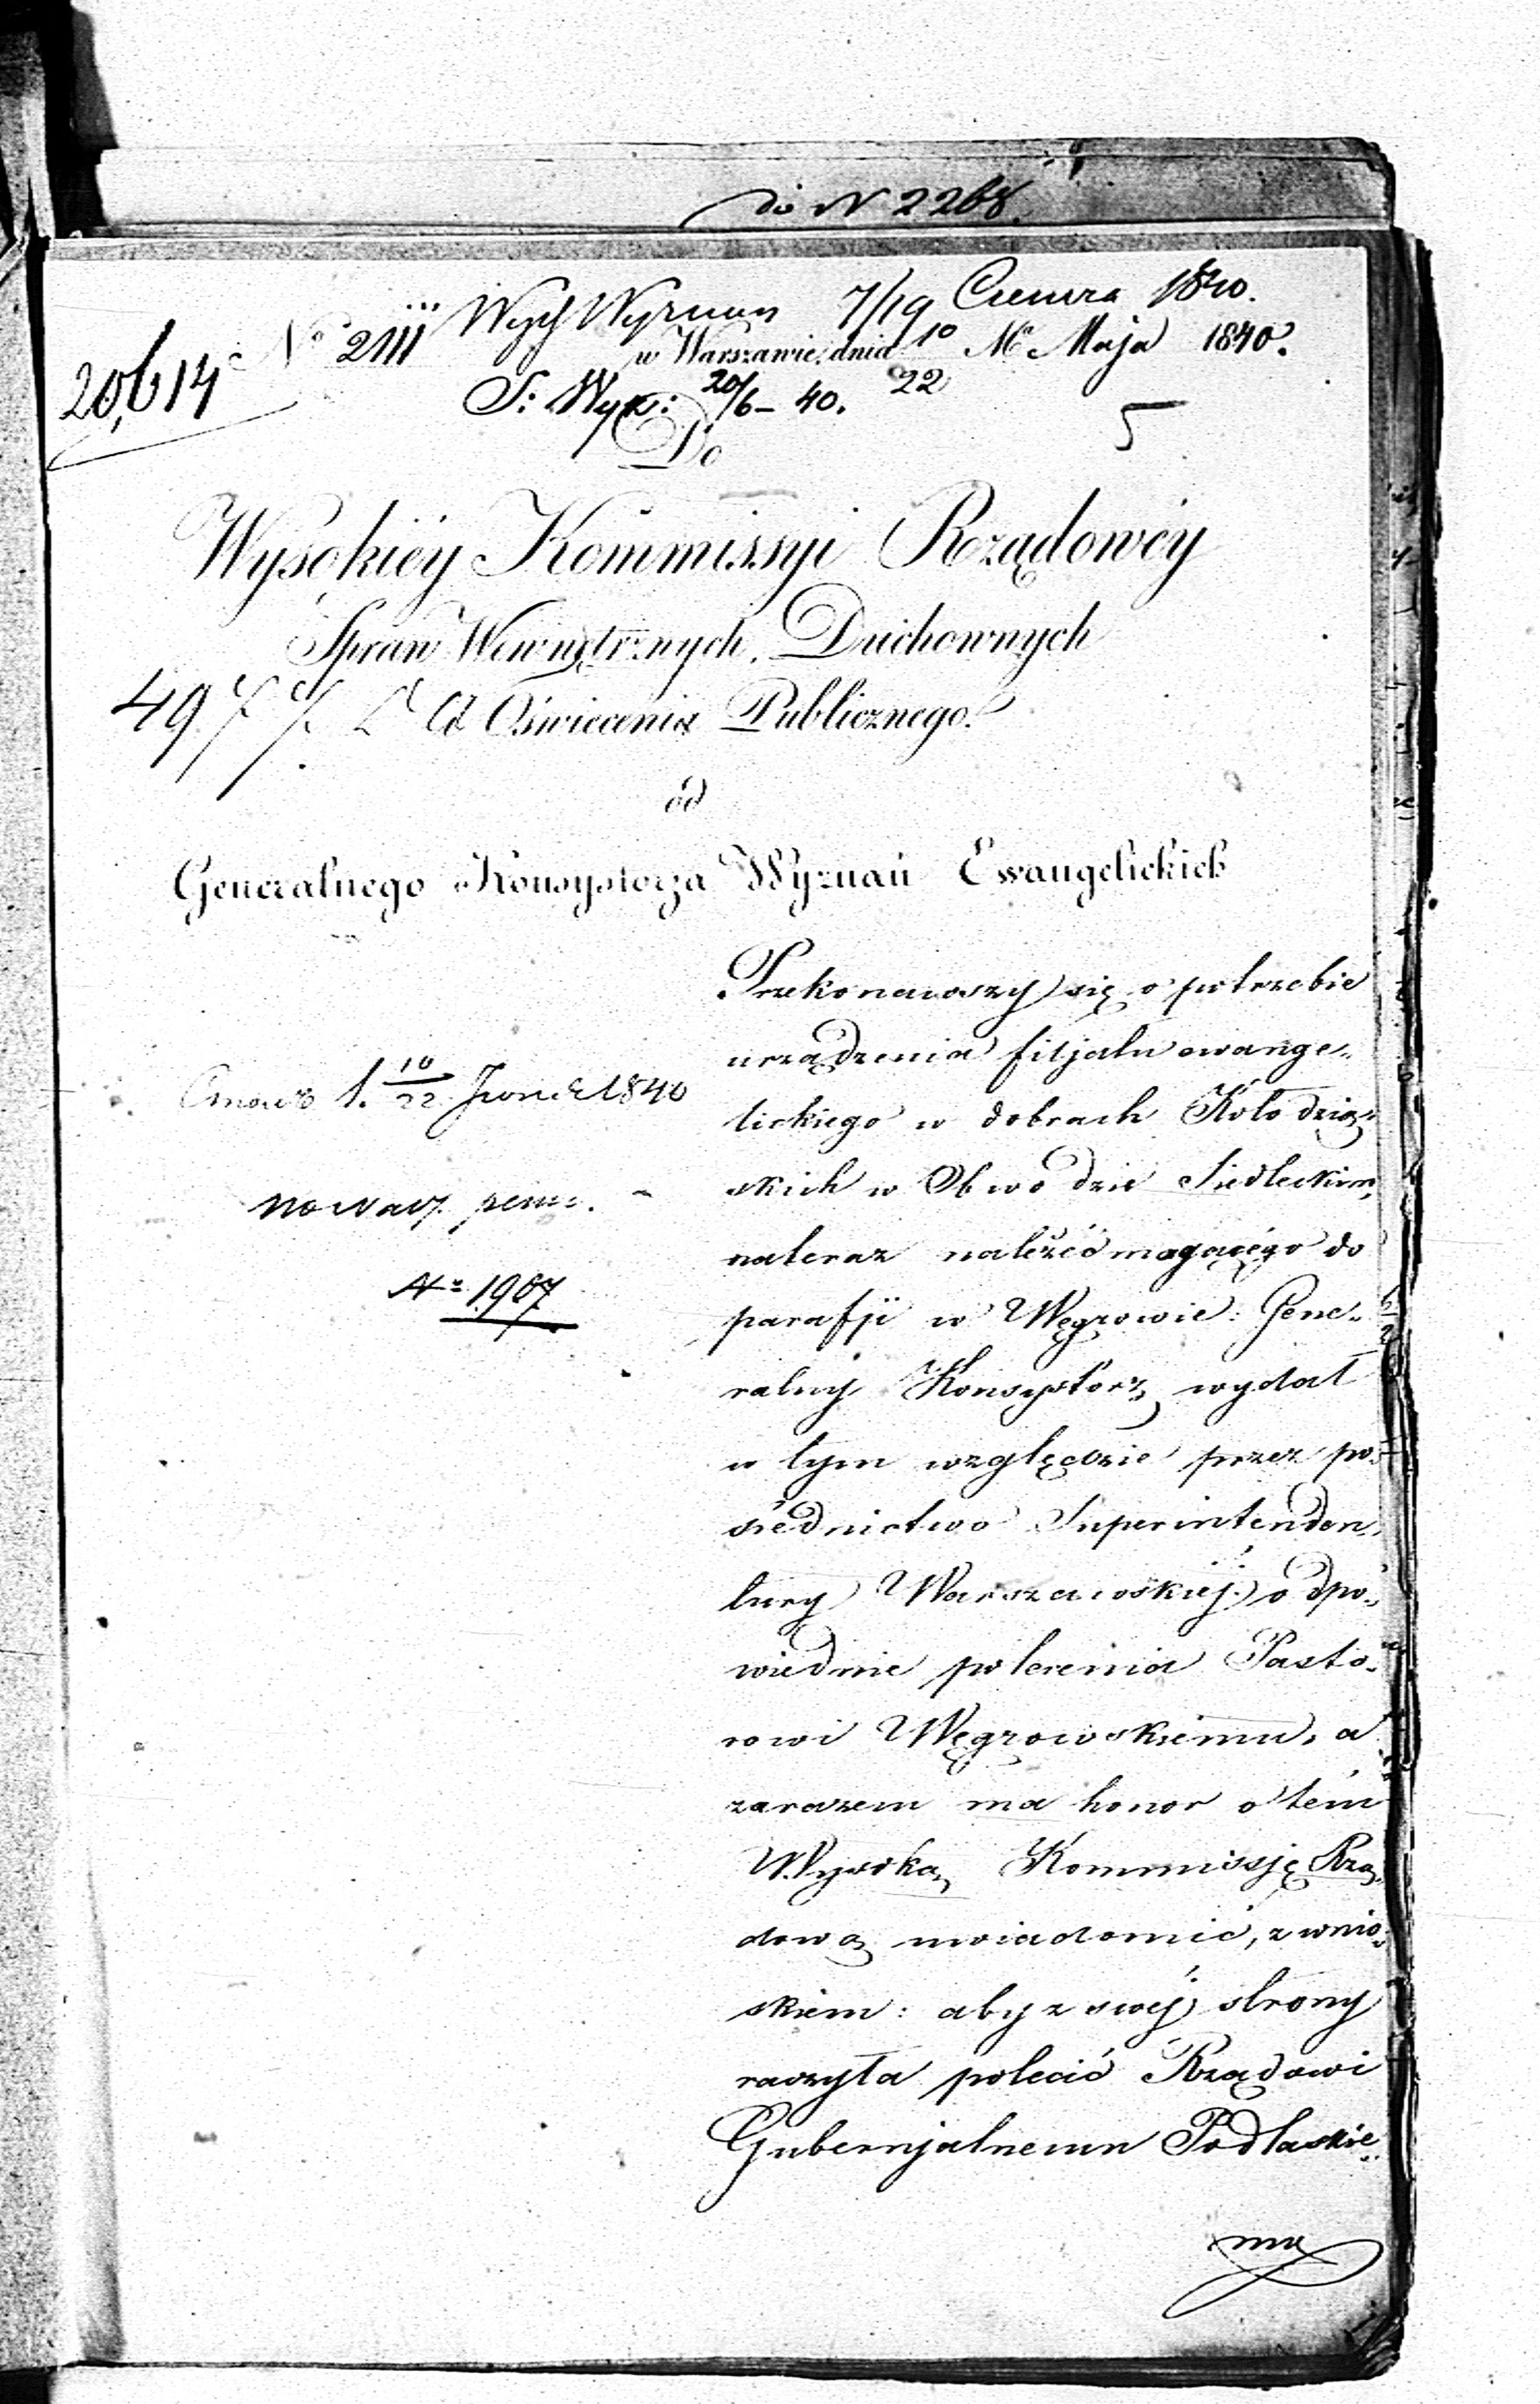 do N 2268.
Wyż Wyznań 7/19 Czerwca 1840.
20,614 No 2111 w Warszawie, dnia 10/22 Mca Maja 1840.
S: Wyz: 20/6 – 40. 5
Do
Wysokiéy Kommissyi Rządowéy
Spraw Wewnętrznych, Duchownych
497 & Oświecenia Publicznego.
od
Generalnego Konsystorza Wyznań Ewangelickich
Przekonawszy się o potrzebie
urządzenia filjału ewange„
lickiego w dobrach Kołodziąż„
skich w Obwodzie Siedleckim,
nateraz należéć mogącégo do
parafji w Węgrowie: Gene„
ralny Konsystorz wydał
w tym względzie przez po„
średnictwo Superintenden„
tury Warszawskiéj odpo„
wiednie polecenia Pasto„
rowi Węgrowskiemu, a
zarazem ma honor o tém
Wysoką Kommissję Rzą„
dową uwiadomić, z wnio„
skiem: aby z swéj strony
raczyła polecić Rządowi
Gubernjalnemu Podlaskie„
mu
10/22 1840
No 1907